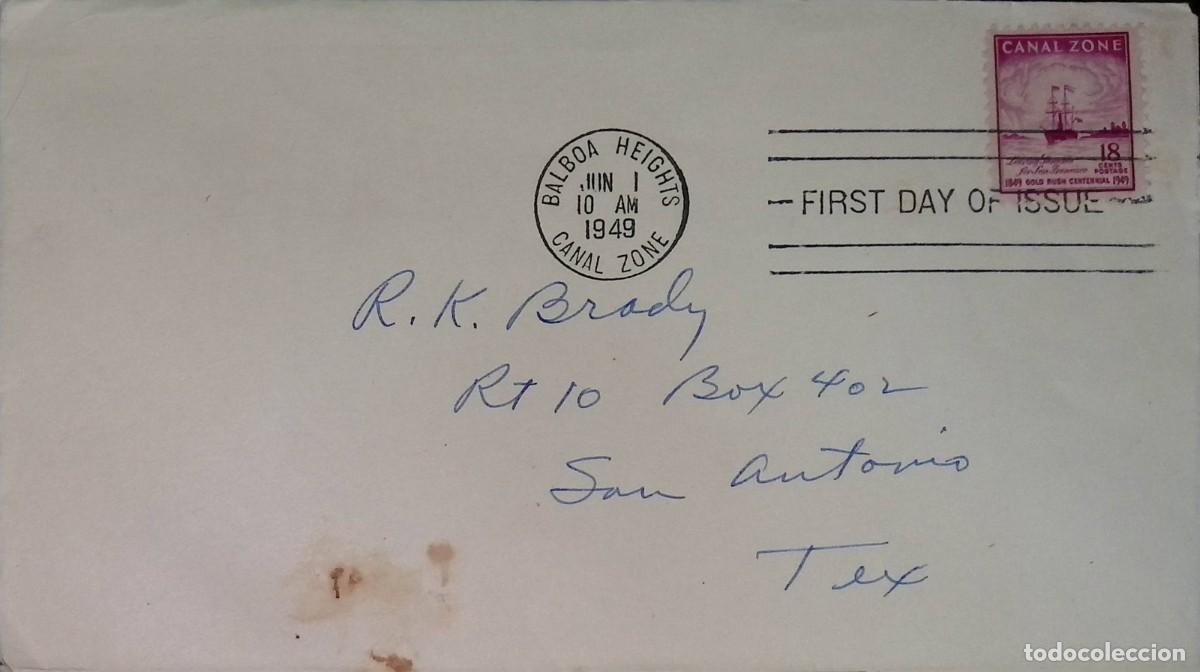 CANAL ZONE
18
CENTS
POSTAGE
Leaving
for San Francisco
1849 GOLD RUSH CENTENNIAL 1949
BALBOA HEIGHTS
JUN 1
10 AM
1949
CANAL ZONE
FIRST DAY OF ISSUE
R. K. Brady
Rt 10 Box 402
San Antonio
Tex
todocoleccion